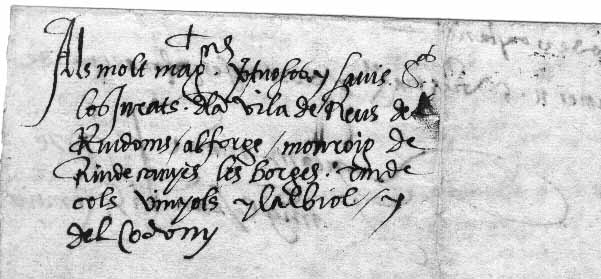 Als molt mag.chs vtuosos y savis Srs
los Jurats dla vila de Reus de
Riudoms / alforge / monroig de
Riudecanyes les borges . riude
cols vinyols y lalbiol / y
del Codony